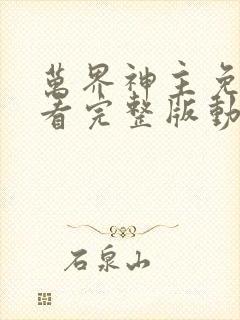 萬界神主免
看完整版動
石泉山